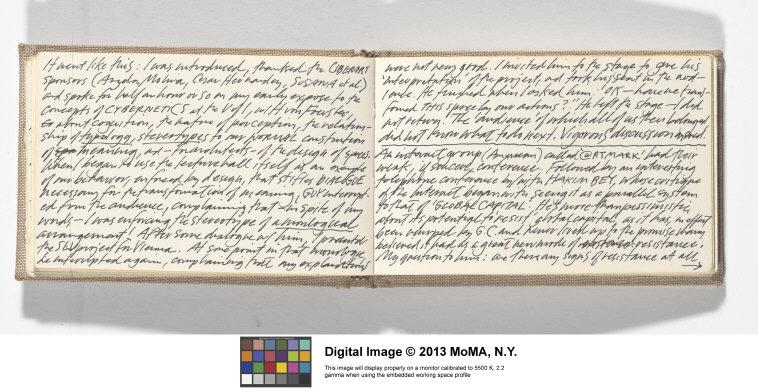 It went like this: I was introduced, thanked the CIBERART
sponsors (Angela Molina, Cesar Hernandez, SUSANA et al)
and spoke for half an hour or so on my early exposure to the
concepts of CYBERNETICS at the U of I, with on Foerster.
about cognition, the nature of perception, the relation-
ship of typology, stereotypes to my personal construction
of meaning, and - for architects - of the design of spaces.
When I began to use the lecture hall itself as an example
of my behavior, enforced by design, that stifles DIALOGUE
necessary for the transformation of meaning, GUY interrupt-
ed from the audience, complaining that in spite of my
words - I was enforcing the stereotype of a monological
arrangement! After some dialogue by him, I presented
the project for Vienna. At some point in that monologue
he interrupted again, complaining that my explanations
were not very good. I invited him to the stage to give his
'interpretation' of the project, and took his seat in the aud-
ience. He finished when I asked him: 'OK - have we trans-
formed this space by our actions?' He left the stage - I did
not return. The audience of which all of us then belonged
did not know what to do next. Vigorous discussion ensued.
An internet group (American) called @RTMARK had their
week, if concerned, conference followed by an interesting
telephone conference by/with HAKIM BEY, whose critique
of the Internet began with seeing it as a parallel system
to that of 'GLOBAL CAPITAL.' He's more than pessimistic
about its potential to resist global capital, as it has, in effect
been usurped by G.C and never lived up to the promise (many
believed it had) as a great new mode of resistance.
My question to him: are there any signs of resistance at all
→
Digital Image © 2013 MoMA, N.Y.
This image will display properly on a monitor calibrated to 5500 K, 2.2
gamma when using the embedded working space profile